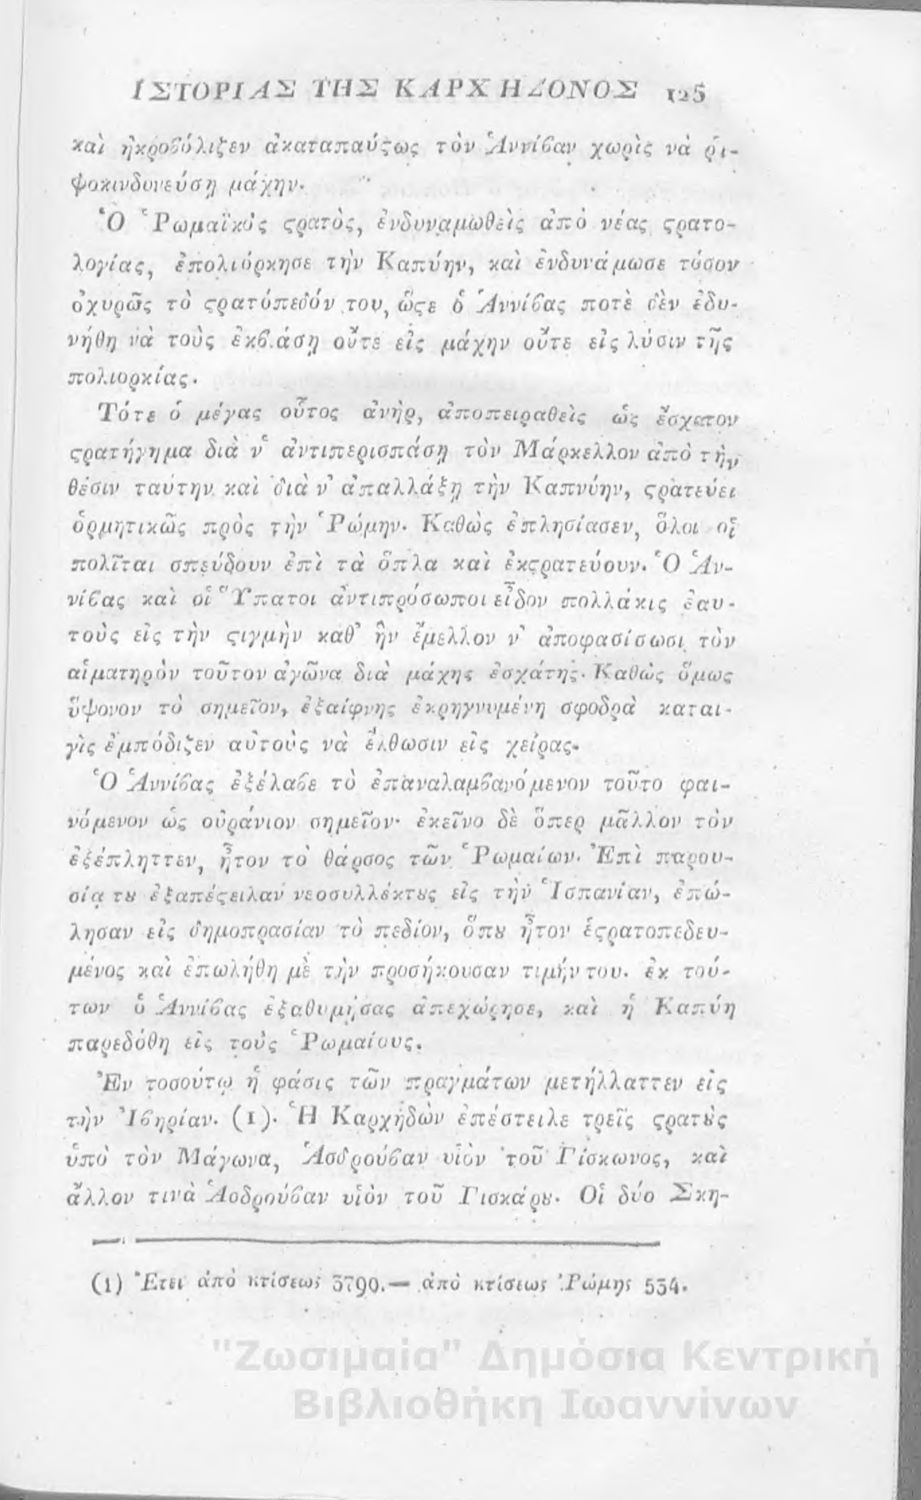 ΙΣΤΟΡΙΑΣ ΤΗΣ ΚΑΡΧΗΔΟΝΟΣ 125
καὶ ἠκροβόλιζεν ἀκαταπαύςως τὸν Ἀννίβαν χωρὶς νὰ ῥι-
ψοκινδυνεύσῃ μάχην.
Ὁ Ῥωμαϊκὸς ςρατὸς, ἐνδυναμωθεὶς ἀπὸ νέας ςρατο-
λογίας, ἐπολιόρκησε τὴν Καπύην, καὶ ἐνδυνάμωσε τόσον
ὀχυρῶς τὸ ςρατόπεδόν του, ὥςε ὁ Ἀννίβας ποτὲ δὲν ἐδυ-
νήθη νὰ τοὺς ἐκβιάσῃ οὔτε εἰς μάχην οὔτε εἰς λύσιν τῆς
πολιορκίας.
Τότε ὁ μέγας οὗτος ἀνὴρ, ἀποπειραθεὶς ὡς ἔσχατον
ςρατήγημα διὰ ν᾿ ἀντιπερισπάσῃ τὸν Μάρκελλον ἀπὸ τὴν
θέσιν ταύτην καὶ διὰ ν᾿ ἀπαλλάξῃ τὴν Καπνύην, ςρατεύει
ὁρμητικῶς πρὸς τὴν Ῥώμην. Καθὼς ἐπλησίασεν, ὅλοι οἱ
πολῖται σπεύδουν ἐπὶ τὰ ὅπλα καὶ ἐκςρατεύουν. Ὁ Ἀν-
νίβας καὶ οἱ Ὕπατοι ἀντιπρόσωποι εἶδον πολλάκις ἑαυ-
τοὺς εἰς τὴν ςιγμὴν καθ᾿ ἣν ἔμελλον ν᾿ ἀποφασίσωσι τὸν
αἱματηρὸν τοῦτον ἀγῶνα διὰ μάχης ἐσχάτης. Καθὼς ὅμως
ὕψονον τὸ σημεῖον, ἐξαίφνης ἐκρηγνυμένη σφοδρὰ καται-
γὶς ἐμπόδιζεν αὐτοὺς νὰ ἔλθωσιν εἰς χεῖρας.
Ὁ Ἀννίβας ἐξέλαβε τὸ ἐπαναλαμβανόμενον τοῦτο φαι-
νόμενον ὡς οὐράνιον σημεῖον· ἐκεῖνο δὲ ὅπερ μᾶλλον τὸν
ἐξέπληττεν, ἦτον τὸ θάρσος τῶν Ῥωμαίων. Ἐπὶ παρου-
σίᾳ τȣ ἐξαπέςειλαν νεοσυλλέκτȣς εἰς τὴν Ἱσπανίαν, ἐπώ-
λησαν εἰς δημοπρασίαν τὸ πεδίον, ὅπȣ ἦτον ἐςρατοπεδευ-
μένος καὶ ἐπωλήθη μὲ τὴν προσήκουσαν τιμήν του. ἐκ τού-
των ὁ Ἀννίβας ἐξαθυμήσας ἀπεχώρησε, καὶ ἡ Καπύη
παρεδόθη εἰς τοὺς Ῥωμαίους.
Ἐν τοσούτῳ ἡ φάσις τῶν πραγμάτων μετήλλαττεν εἰς
τὴν Ἰβηρίαν. (1). Ἡ Καρχηδὼν ἐπέστειλε τρεῖς ςρατȣς
ὑπὸ τὸν Μάγωνα, Ἀσδρούβαν υἱὸν τοῦ Γίσκωνος, καὶ
ἄλλον τινὰ Ἀσδρούβαν υἱὸν τοῦ Γισκάρȣ. Οἱ δύο Σκη-
(1) Ἔτει ἀπὸ κτίσεως 3790.— ἀπὸ κτίσεως Ῥώμης 534.
"Ζωσιμαία" Δημόσια Κεντρική
Βιβλιοθήκη Ιωαννίνων